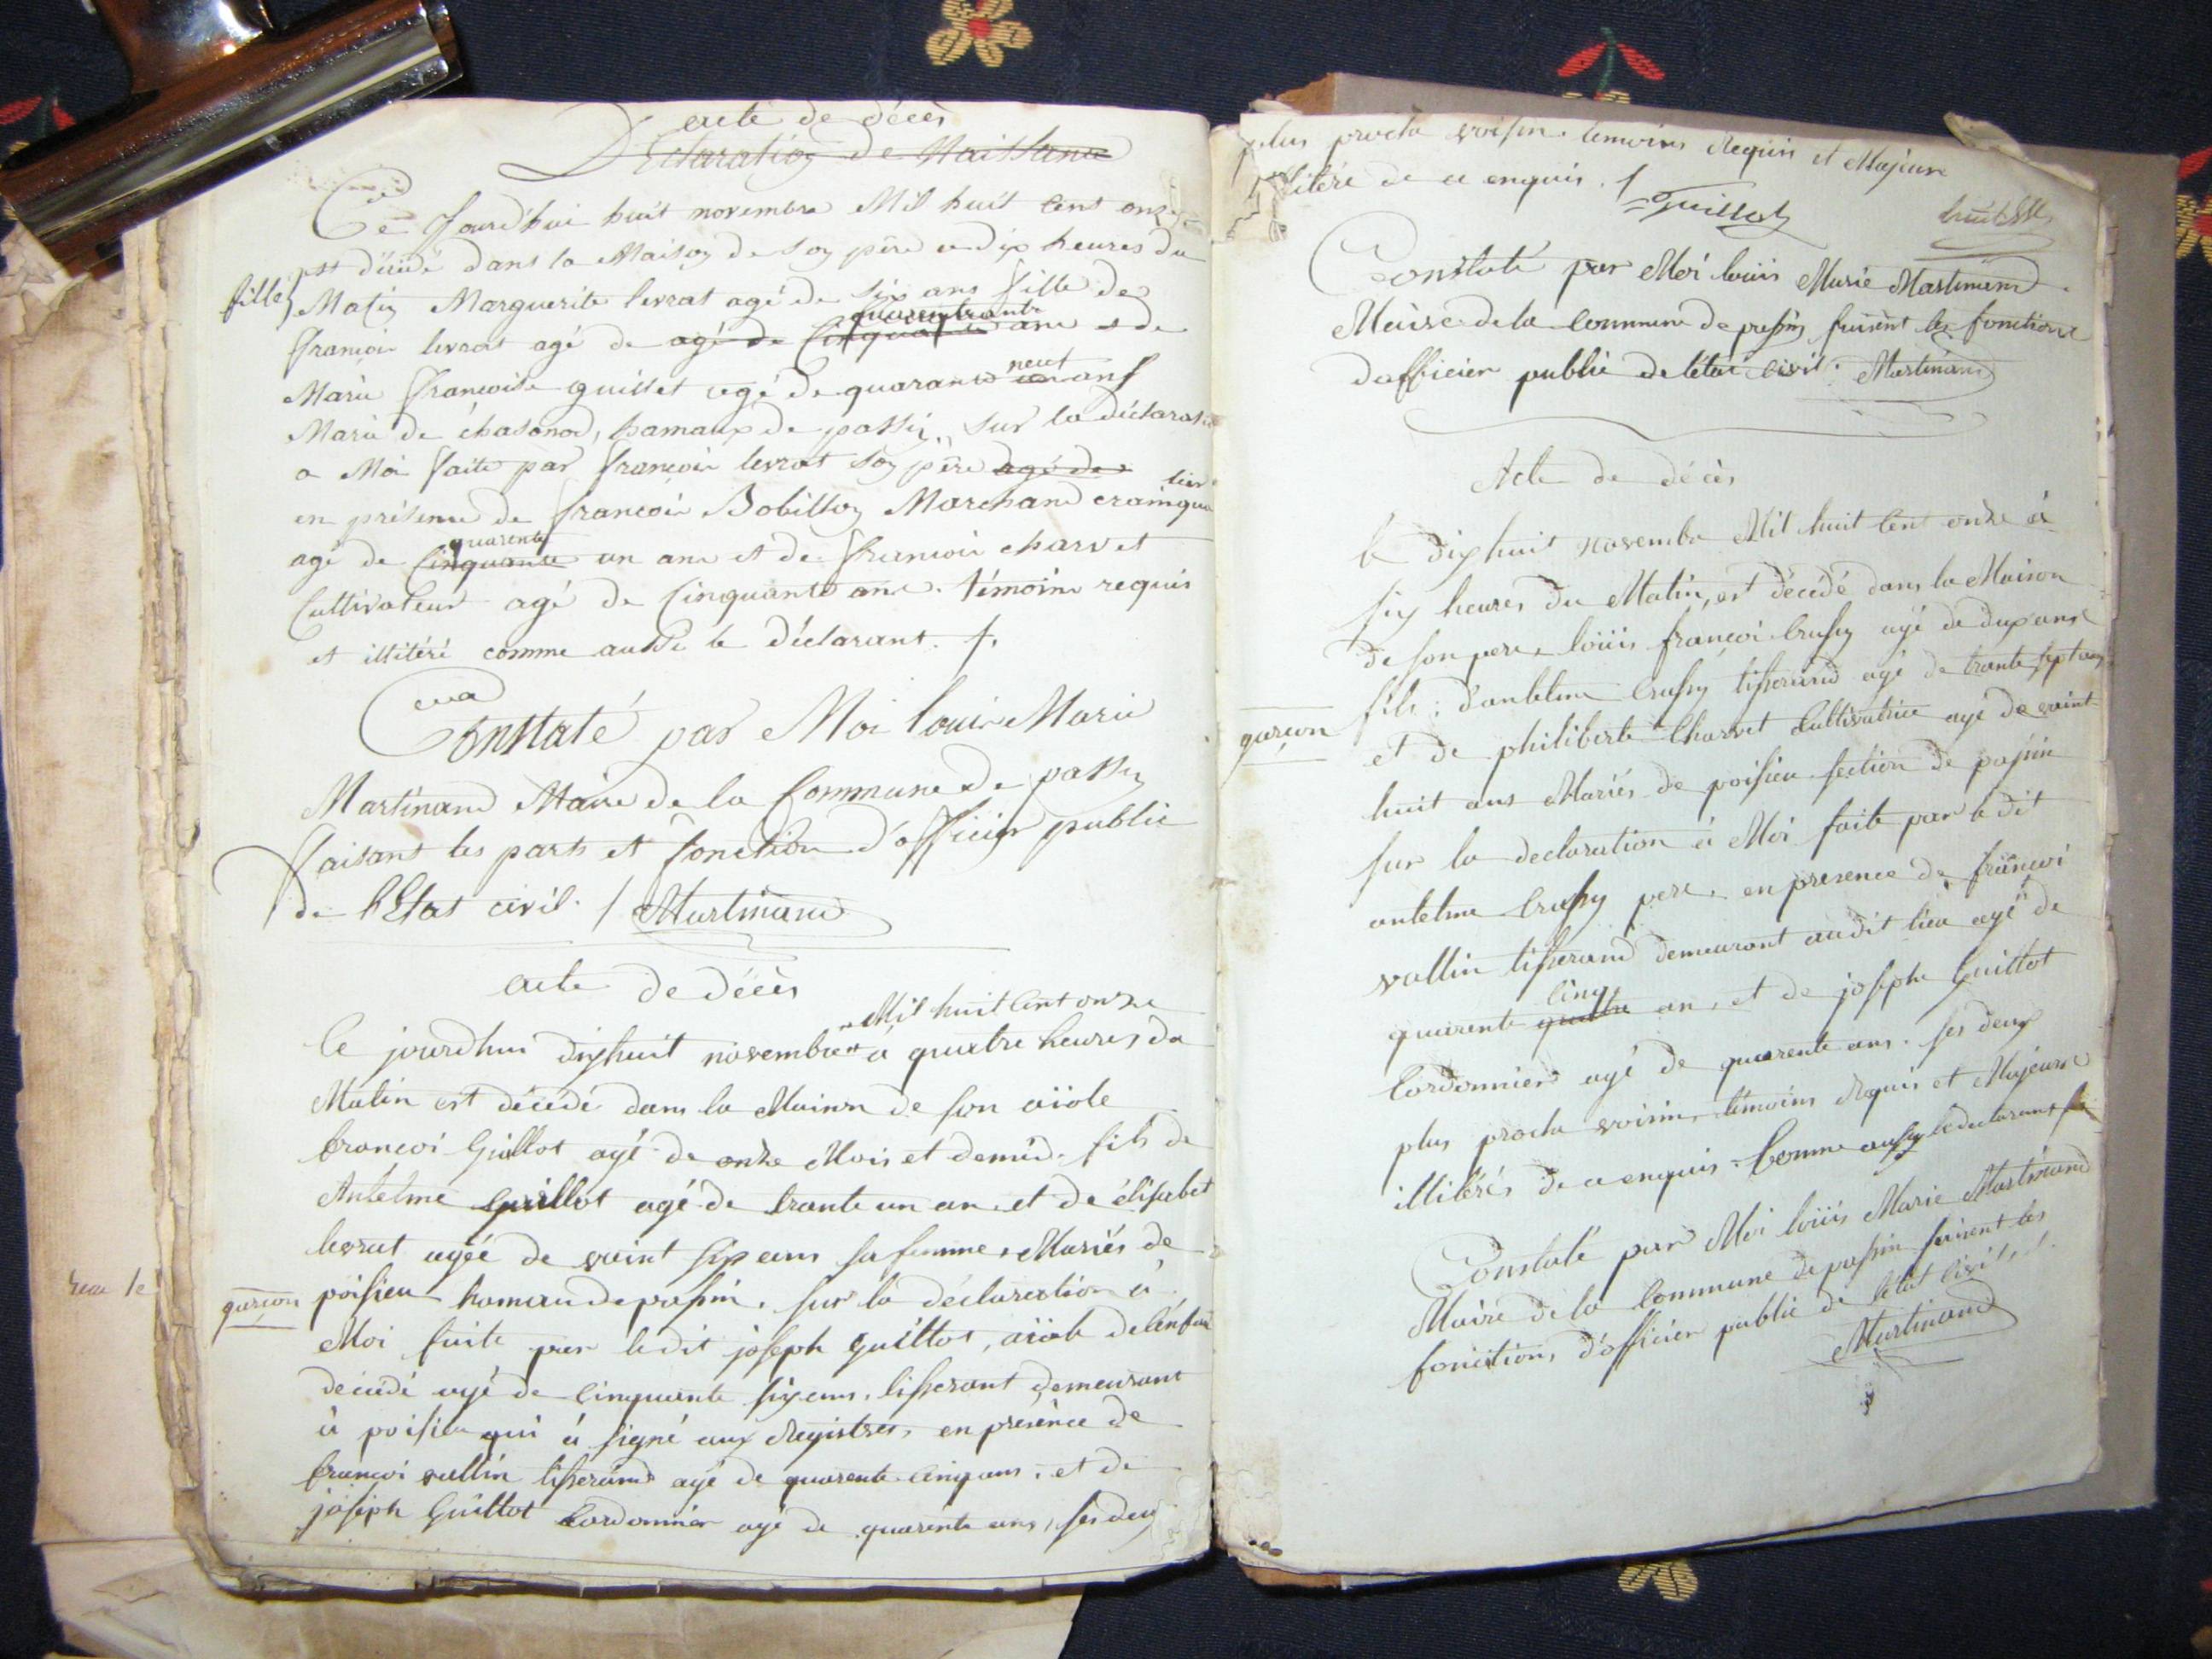 acte de décès
Déclaration de Naissance
Ce Jourd'hui huit novembre Mil huit cent onze
est décédé dans la Maison de son père a dix heures du
fille Matin Marguerite levrat agé de six ans fille de
francois levrat agé de agé de Cinquante ans et de
Marie francoise guillet agé de quarante neuf ans
Marié de chasonod, hamaux de passin. Sur la déclaration
a Moi faite par francois levrat son père agé de
en présence de francois Bobillon Marchand crainquallier
agé de Cinquante quarente un ans et de francois charvet
Cultivateur agé de Cinquante ans. témoins requis
et illitéré comme aussi le déclarant. /.
Constaté par Moi louis Marie
Martinand Maire de la Commune de passin
faisant les parts et fonction d'officier public
de l'Etat civil. / Martinand
acte de décès
Mil huit cent onze
Ce jourdhui dixhuit novembre à quatre heures du
Matin est décédé dans la Maison de son aïole
francoi Guillot agé de onze Mois et demid. fils de
Antelme guillot agé de trante un an et de élisabet
levrat agée de vaint six ans sa femme, Mariés de
garçon poisieu hamaudepassin. sur la déclaration à
Moi faite par ledit joseph guillot, aïole delenfant
décédé agé de cinquante six ans. tisserant demeurant
à poisieu qui à signé aux Registres, en présence de
francoi vallin tisserand agé de quarente cinq ans, et de
joseph Guillot Cordonnier agé de quarente ans, ses deux
plus proche voisin. temoins Requis et Majeure
illitéré de ce enquis. /
Guillot
Constaté par Moi louis Marie Martinand
Maire de la Commune de passin faisent les fonctions
dofficier public de létat civil. Martinand
Acte de décès
le dixhuit novembre Mil huit cent onze à
six heures du Matin, est décédé dans la Maison
de son pere, loüis françoi Crussy agé de dux ans
fils: d'antelme Crussy tisserand agé de trante sept ans
garçon et de philiberte Charvet Cultivatrice agé de vaint
huit ans Mariés de poisieu section de passin
sur la declaration à Moi faite par le dit
antelme Crussy pere. en presence de françoi
vallin tisserand demeurant audit lieu agé de
cinq
quarente quattre an, et de joseph Guillot
Cordonnier agé de quarente ans. ses deux
plus proche voisin, témoins Requis et Majeure
illitérés de ce enquis. Comme aussy le declarant
Constaté par Moi loüis Marie Martinand
Maire de la Commune de passin faisent les
fonctions d'officier public de létat civil.
Martinand